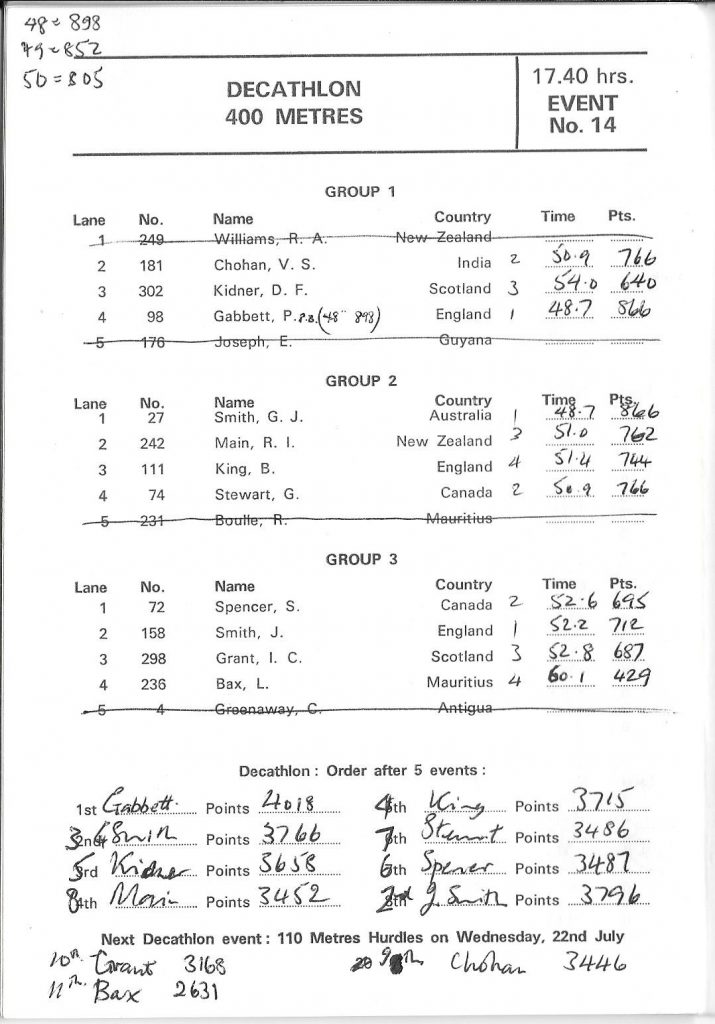 48 = 898
49 = 852
50 = 805
DECATHLON
400 METRES
17.40 hrs.
EVENT
No. 14
GROUP 1
Lane No. Name Country Time Pts.
1 249 Williams, R. A. New Zealand
2 181 Chohan, V. S. India 2 50.9 766
3 302 Kidner, D. F. Scotland 3 54.0 640
4 98 Gabbett, P. P.B. (48" 898) England 1 48.7 866
5 176 Joseph, E. Guyana
GROUP 2
Lane No. Name Country Time Pts.
1 27 Smith, G. J. Australia 1 48.7 866
2 242 Main, R. I. New Zealand 3 51.0 762
3 111 King, B. England 4 51.4 744
4 74 Stewart, G. Canada 2 50.9 766
5 231 Boulle, R. Mauritius
GROUP 3
Lane No. Name Country Time Pts.
1 72 Spencer, S. Canada 2 52.6 695
2 158 Smith, J. England 1 52.2 712
3 298 Grant, I. C. Scotland 3 52.8 687
4 236 Bax, L. Mauritius 4 60.1 429
5 4 Greenaway, C. Antigua
Decathlon : Order after 5 events :
1st Gabbett. Points 4018 4th King Points 3715
3 2nd G Smith Points 3766 7th Stewart Points 3486
5 3rd Kidner Points 3658 6th Spencer Points 3487
8 4th Main Points 3452 2nd 8th J. Smith Points 3796
Next Decathlon event : 110 Metres Hurdles on Wednesday, 22nd July
10th. Grant 3168 9th Chohan 3446
11th. Bax 2631